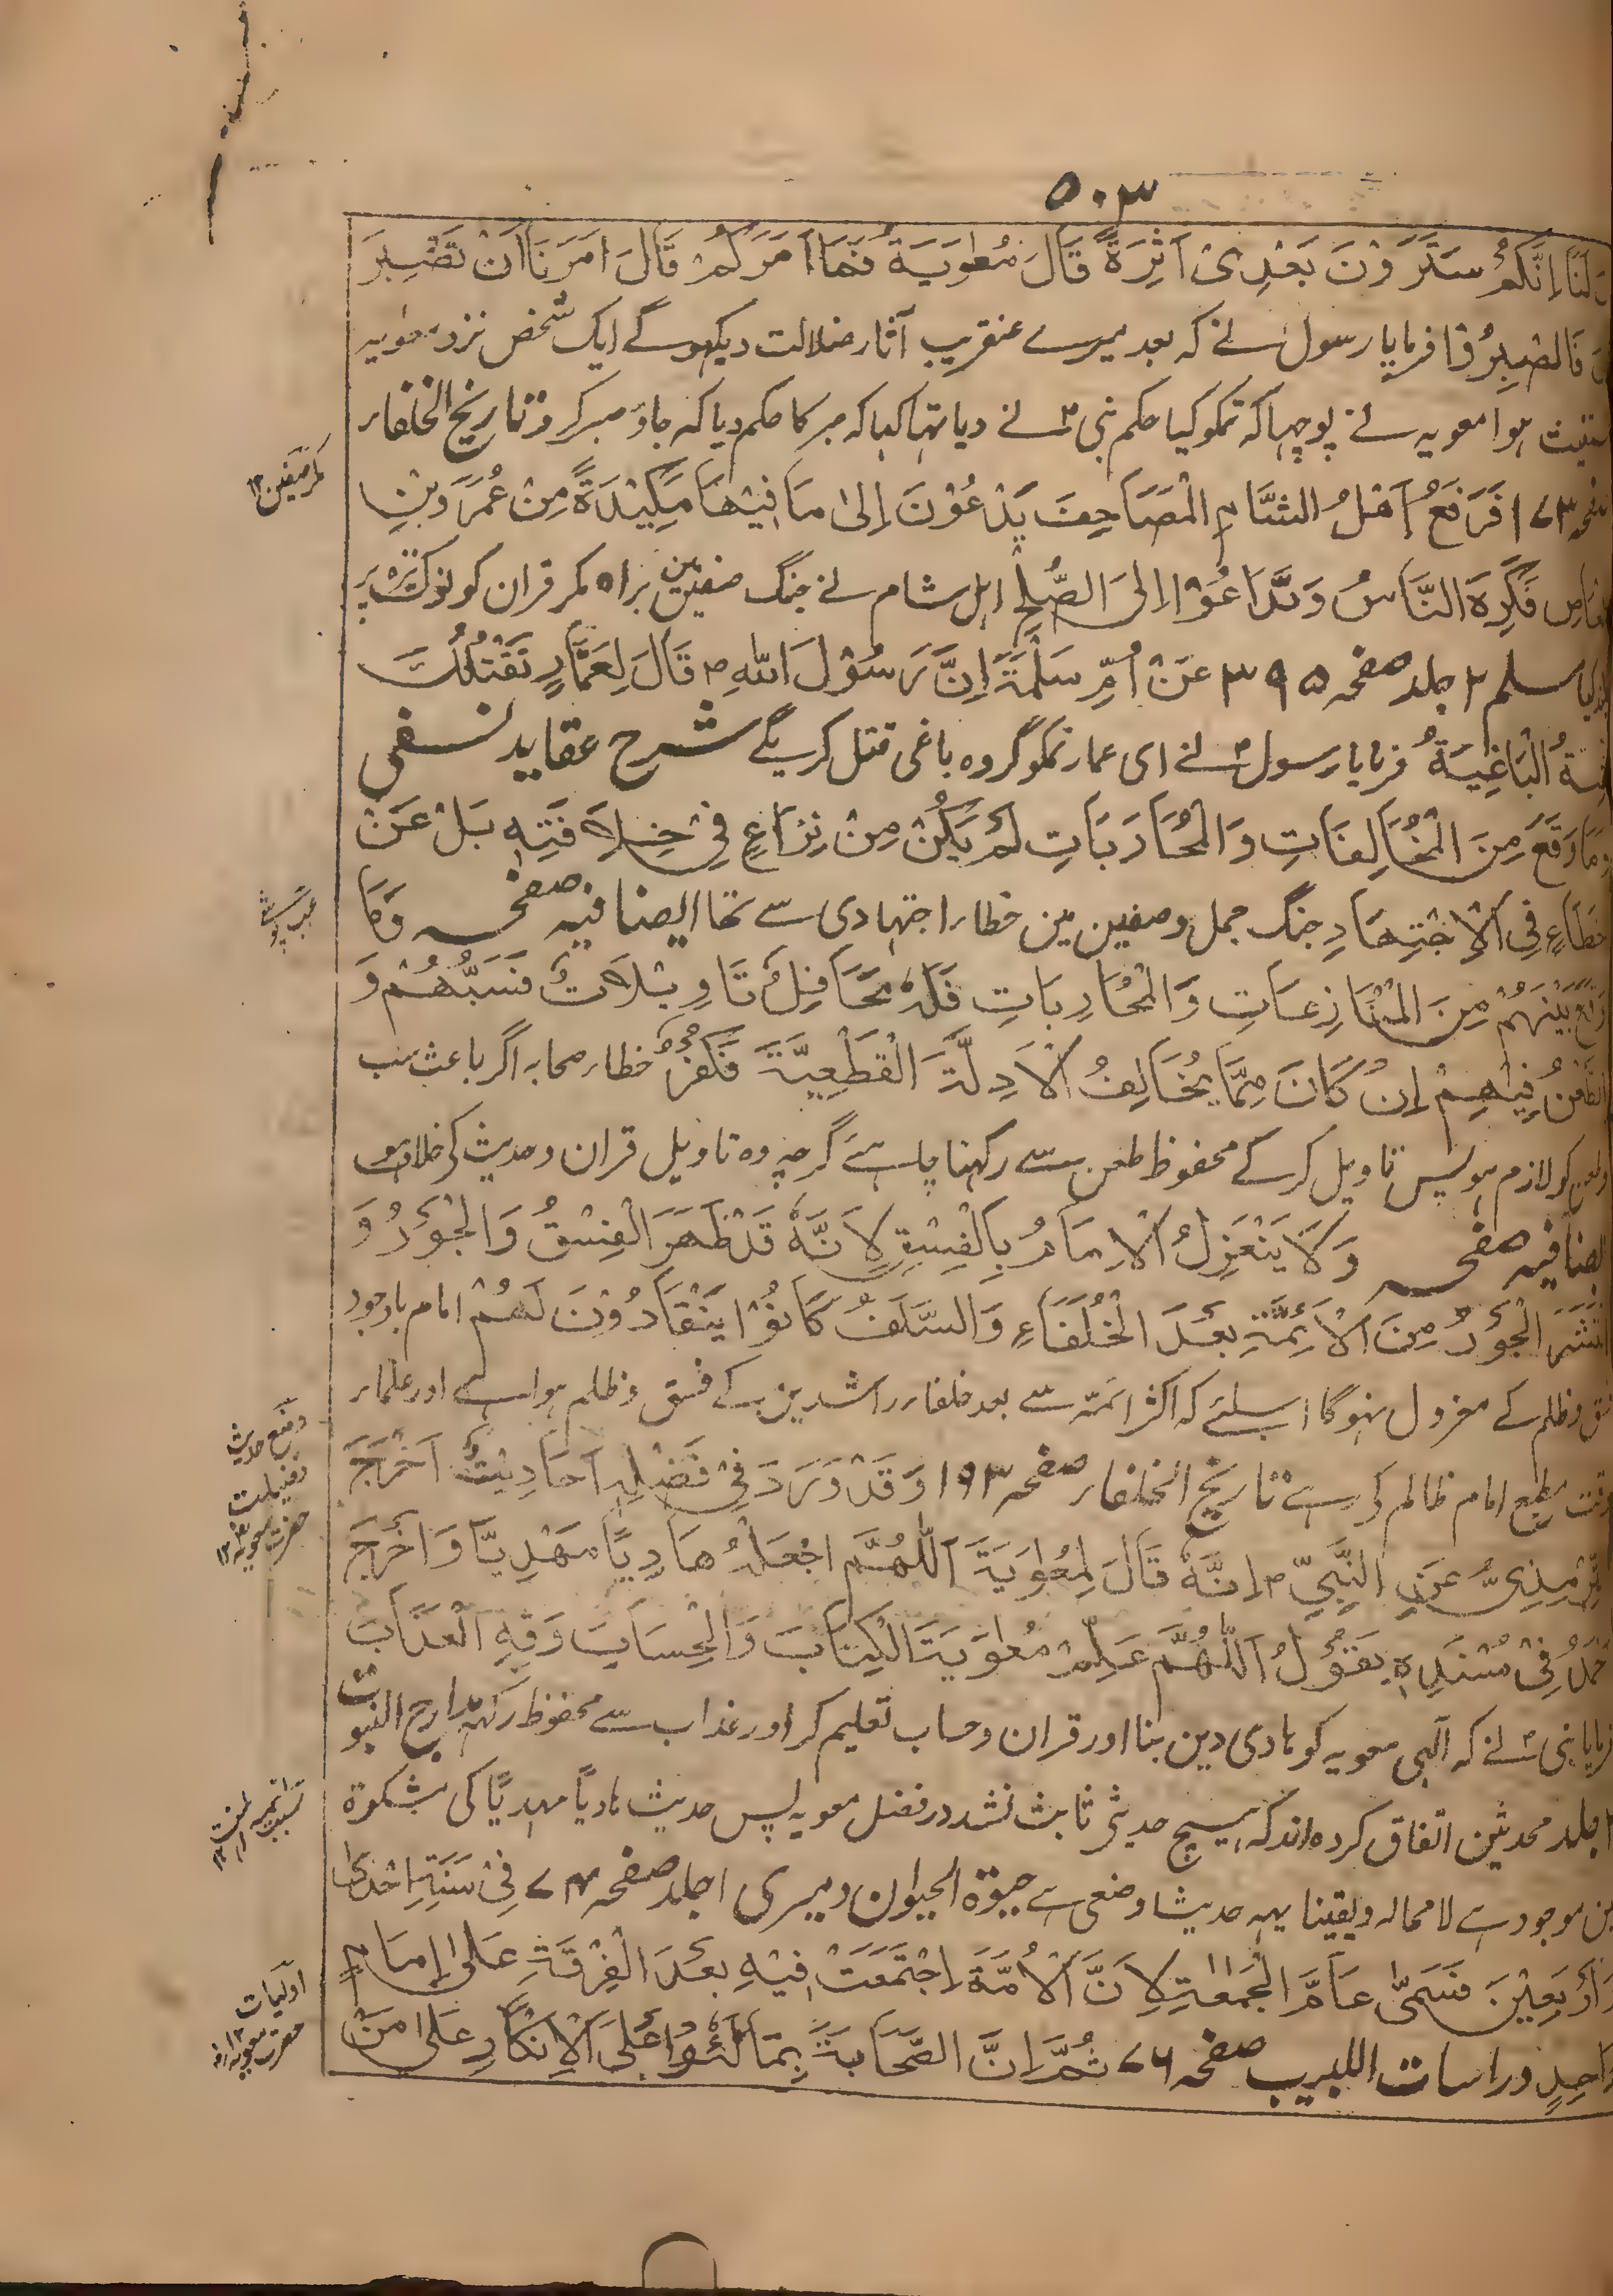 ۵۰۳
لَنَا اِنَّكُمْ سَتَرَوْنَ بَعْدِیْ اَثِرَةً قَالَ مُعٰوِیَةُ فَمَا اَمَرَكُمْ قَالَ اَمَرَنَا اَنْ نَصْبِرَ
فَاصْبِرُوْا فرمایا رسول نے کہ بعد میرے عنقریب آثار ضلالت دیکہوگے ایک شخص نزد معویہ
ہوا معویہ نے پوچہا کہ تمکو کیا حکم نبی ؐ نے دیا تہا کہا کہ صبر کا حکم دیا کہ جاؤ صبر کرو تاریخ الخلفاء
صفحہ ۱۷۳ فَرَفَعَ اَهْلُ الشَّامِ الْمَصَاحِفَ یَدْعُوْنَ اِلٰی مَا فِیْهَا مَكِیْدَةً مِنْ عُمَرَ وَبْنِ
فَكَرِهَ النَّاسُ وَتَدَاعُوْا اِلَی الصُّلْحِ اہل شام نے جنگ صفین مین براہ مکر قران کو نوک نیزہ پر
مسلم ۲ جلد صفحہ ۳۹۵ عَنْ اُمِّ سَلْمَةَ اِنَّ رَسُوْلَ اللّٰهِ ؐ قَالَ لِعَمَّارٍ تَقْتُلُكَ
الْبَاغِیَةُ فرمایا رسول ؐ نے ای عمار تمکو گروہ باغی قتل کریگے شرح عقاید نسفی
وَمَا وَقَعَ مِنَ الْمُخَالِفَاتِ وَالْمُحَارَبَاتِ لَمْ یَكُنْ مِنْ نِزَاعٍ فِیْ خِلَافَتِهٖ بَلْ عَنْ
خَطَاءٍ فِی الْاِجْتِهَادِ جنگ جمل و صفین مین خطاء اجتہادی سے تہا ایضا فیہ صفحہ وَمَا
وَقَعَ بَیْنَهُمْ مِنَ الْمُنَازِعَاتِ وَالْمُحَارِبَاتِ فَلَهٗ مَحَافِلُ تَاوِیْلَاتٌ فَسَبُّهُمْ وَ
الطَّعْنُ فِیْهِمْ اِنْ كَانَ مِمَّا یُخَالِفُ الْاَدِلَّةَ الْقَطْعِیَّةَ فَكُفْرٌ خطاء صحابہ اگر باعث سب
کو لازم ہو پس تاویل کرکے محفوظ طعن سے رکہنا چاہئے گرچہ وہ تاویل قران و حدیث کی خلاف ہو
ایضا فیہ صفحہ وَلَا یَنْعَزِلُ الْاِمَامُ بِالْفِسْقِ لِاَنَّهٗ قَدْ ظَهَرَ الْفِسْقُ وَالْجَوْرُ وَ
انْتَشَرَ الْجَوْرُ مِنَ الْاَئِمَّةِ بَعْدَ الْخُلَفَاءِ وَالسَّلَفُ كَانُوْا یَنْقَادُوْنَ لَهُمْ امام باوجود
فسق و ظلم کے معزول نہوگا اسلئے کہ اکثر ائمہ سے بعد خلفاء راشدین کے فسق و ظلم ہوا ہے اور علماء
وقت مطیع امام ظالم کی رہے تاریخ الخلفاء صفحہ ۱۹۳ وَقَدْ وَرَدَ فِیْ فَضْلِهٖ اَحَادِیْثُ اَخْرَجَ
تِرْمِذِیُّ عَنِ النَّبِیِّ ؐ اِنَّهٗ قَالَ لِمُعٰوِیَةَ اَللّٰهُمَّ اجْعَلْهُ هَادِیًا مَهْدِیًّا وَاَخْرَجَ
اَحْمَدُ فِیْ مُسْنَدِهٖ یَقُوْلُ اَللّٰهُمَّ عَلِّمْ مُعٰوِیَةَ الْكِتَابَ وَالْحِسَابَ وَقِهِ الْعَذَابَ
فرمایا نبی ؐ نے کہ الٰہی معویہ کو ہادی دین بنا اور قران و حساب تعلیم کر اور عذاب سے محفوظ رکہہ مدارج النبوت
۱ جلد محدثین اتفاق کردہ اند کہ ہیچ حدیثی ثابت نشد در فضل معویہ پس حدیث ہادیًا مہدیًا کی مشکوۃ
مین موجود ہے لا محالہ و یقینا یہہ حدیث وضعی ہے حیوۃ الحیوان دمیری ۱ جلد صفحہ ۷۴ فِیْ سَنَةِ اِحْدٰی
وَاَرْبَعِیْنَ فَسَمّٰی عَامَ الْجَمَاعَةِ لِاَنَّ الْاُمَّةَ اجْتَمَعَتْ فِیْهِ بَعْدَ الْفِرْقَةِ عَلٰی اِمَامٍ
وَاحِدٍ دراسات اللبیب صفحہ ۷۶ ثُمَّ اِنَّ الصَّحَابَةَ عَلَی الْاِنْكَارِ عَلٰی مَنْ
مکر صفین ۱۲
وضع حدیث
فضیلت
حضرت معویہ ۱۲
اولیات
حضرت معویہ ۱۲